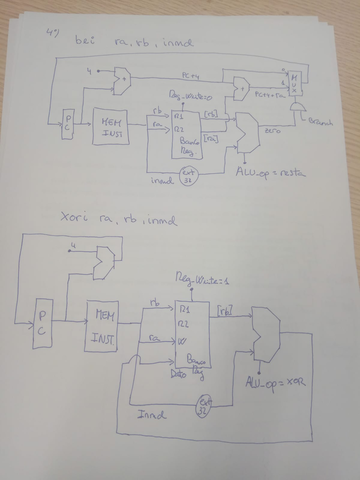 4º) bei ra, rb, inmd
4
+
PC+4
Reg_Write=0
+
PC+4+ra
M
U
X
P
C
MEM
INST.
rb
ra
R1
R2
Banco
Reg
[rb]
[ra]
zero
Branch
inmd
Ext
32
ALU_op=resta
xori ra, rb, inmd
4
+
Reg_Write=1
P
C
MEM
INST.
rb
ra
R1
R2
W
Banco
Reg
Dato
[rb]
Inmd
Ext
32
ALU_op=XOR